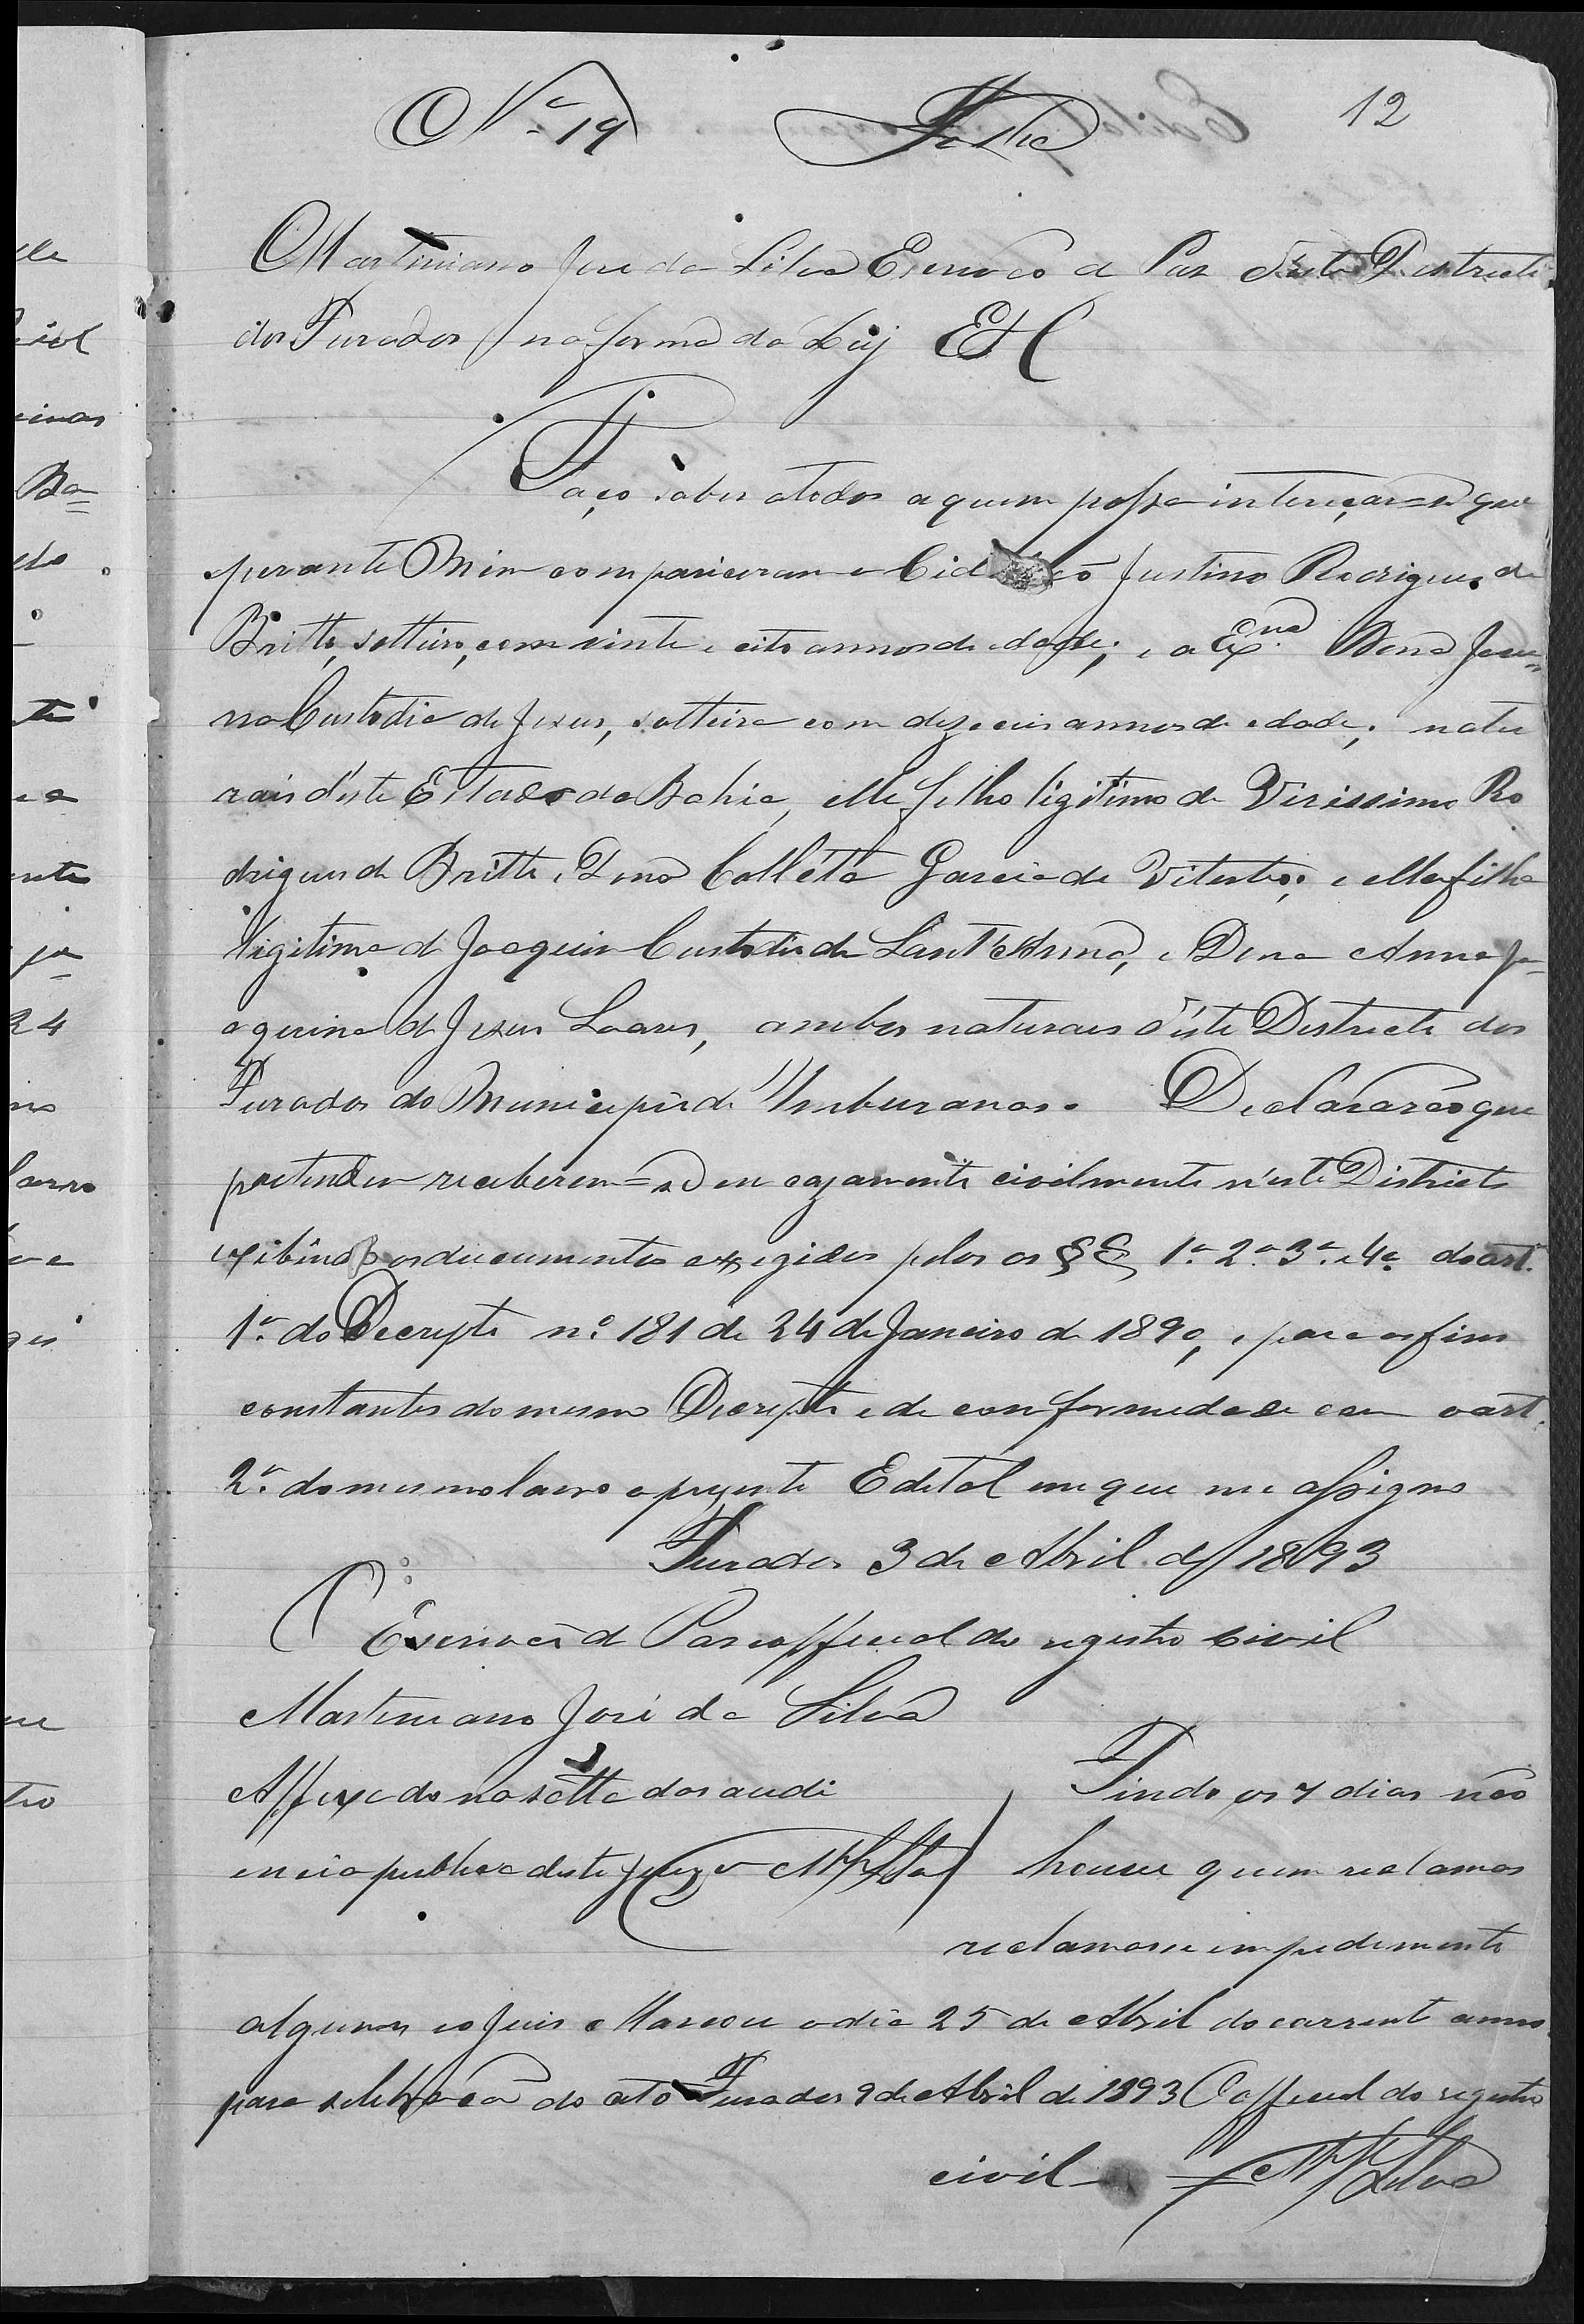 Nº 19 12
Martiniano José da Silva Escrivão de Paz d'este Destricto
dos Furados na forma da Ley Et C
Faço saber atodos a quem possa intereçar-se que
perante Mim compariceram o Cidadão Justino Rodrigues de
Britto, solteiro, com vinte e oito annos de edade; e a Exma Dona Jesui
na Custodia de Jesus, solteira com dezeceis annos de edade; natu
rais d'este Estado da Bahia, elle filho ligitimo de Virissimo Ro
drigues de Britto e Dona Collêta Garcia de e ella filha
ligitima de Joaquim Custodio de Sant'Anna, e Dona Anna Jo-
aquina de Jesus Soares, ambos naturais d'este Destricto dos
Furados do Municipio de Umburanas. Declararão que
pretendem receberem-se em cazamento civilmente n'este Districto
exibindo os ducumentos exegidos pelos os §§ 1º 2º 3º e 4º do art.
1º do Decrepto nº 181 de 24 de Janeiro de 1890, e para os fins
constantes do mesmo Decrepto e de conformedade com o art.
2º do mesmo lavro o prezente Edital em que me assigno
Furados 3 de Abril de 1893
O Escrivão de Paz e official do registro civil
Martiniano José da Silva
Affixado na salla das audi Findo os 7 dias não
encia publica deste Juizo MJSilva houve quem reclamas
reclamasse impedimento
algum eo Juis Marcou o dia 25 de Abril do corrente anno
para selebração do ato Furados 9 de Abril de 1893 O official do registro
civil MJSilva